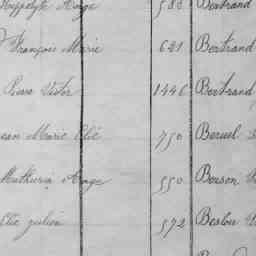 Hyppolyte Ange 588 Bertrand
François Marie 621 Bertrand
Pierre Victor 1446 Bertrand
ean Marie Elié 750 Beruel
Mathurin Ange 550 Besson
Elie julien 572 Beslou